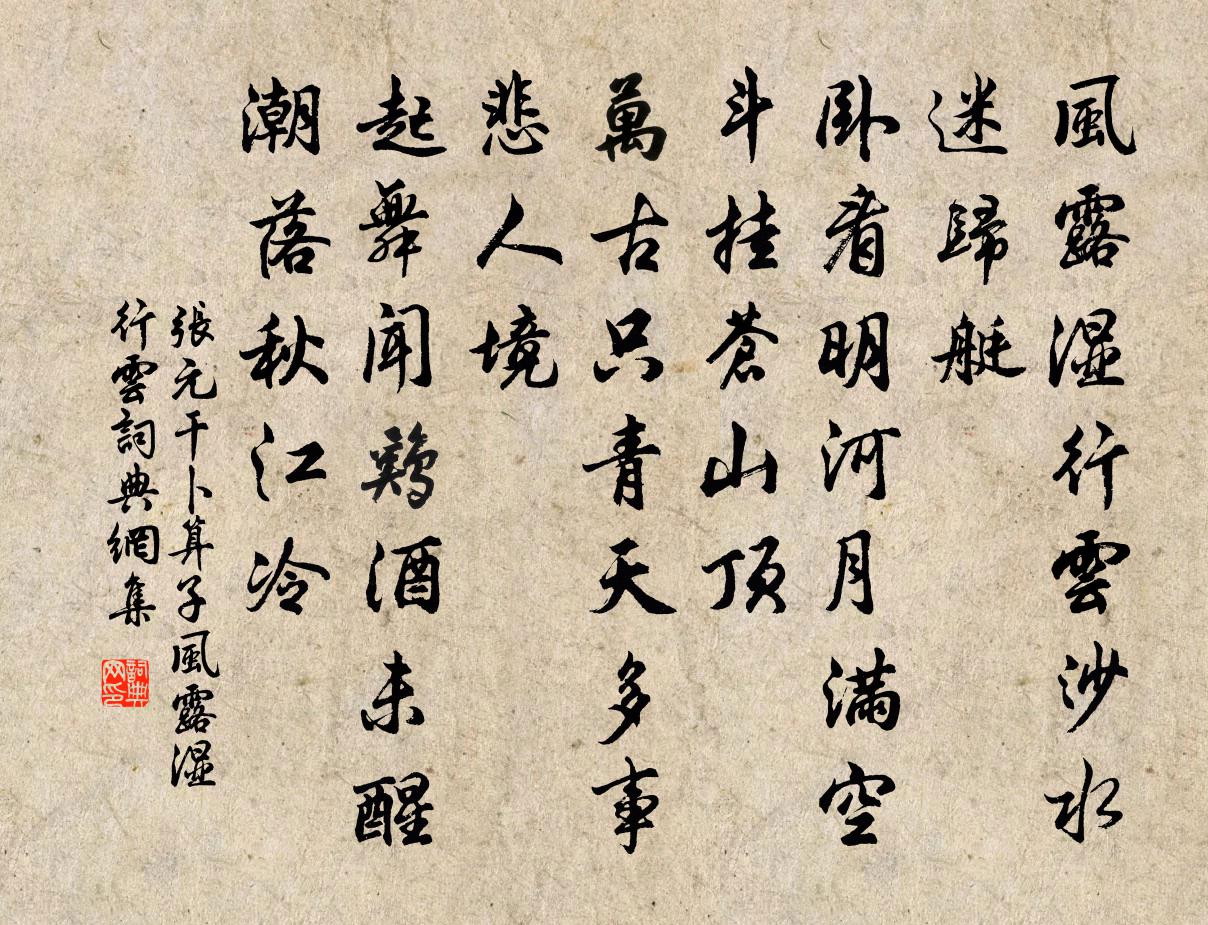 風露湿行雲沙水
迷歸艇
卧看明河月满空
斗挂蒼山顶
萬古只青天多事
悲人境
起舞闻鷄酒未醒
潮落秋江冷
張元干卜算子風露湿
行雲詞典網集
詞典
网印